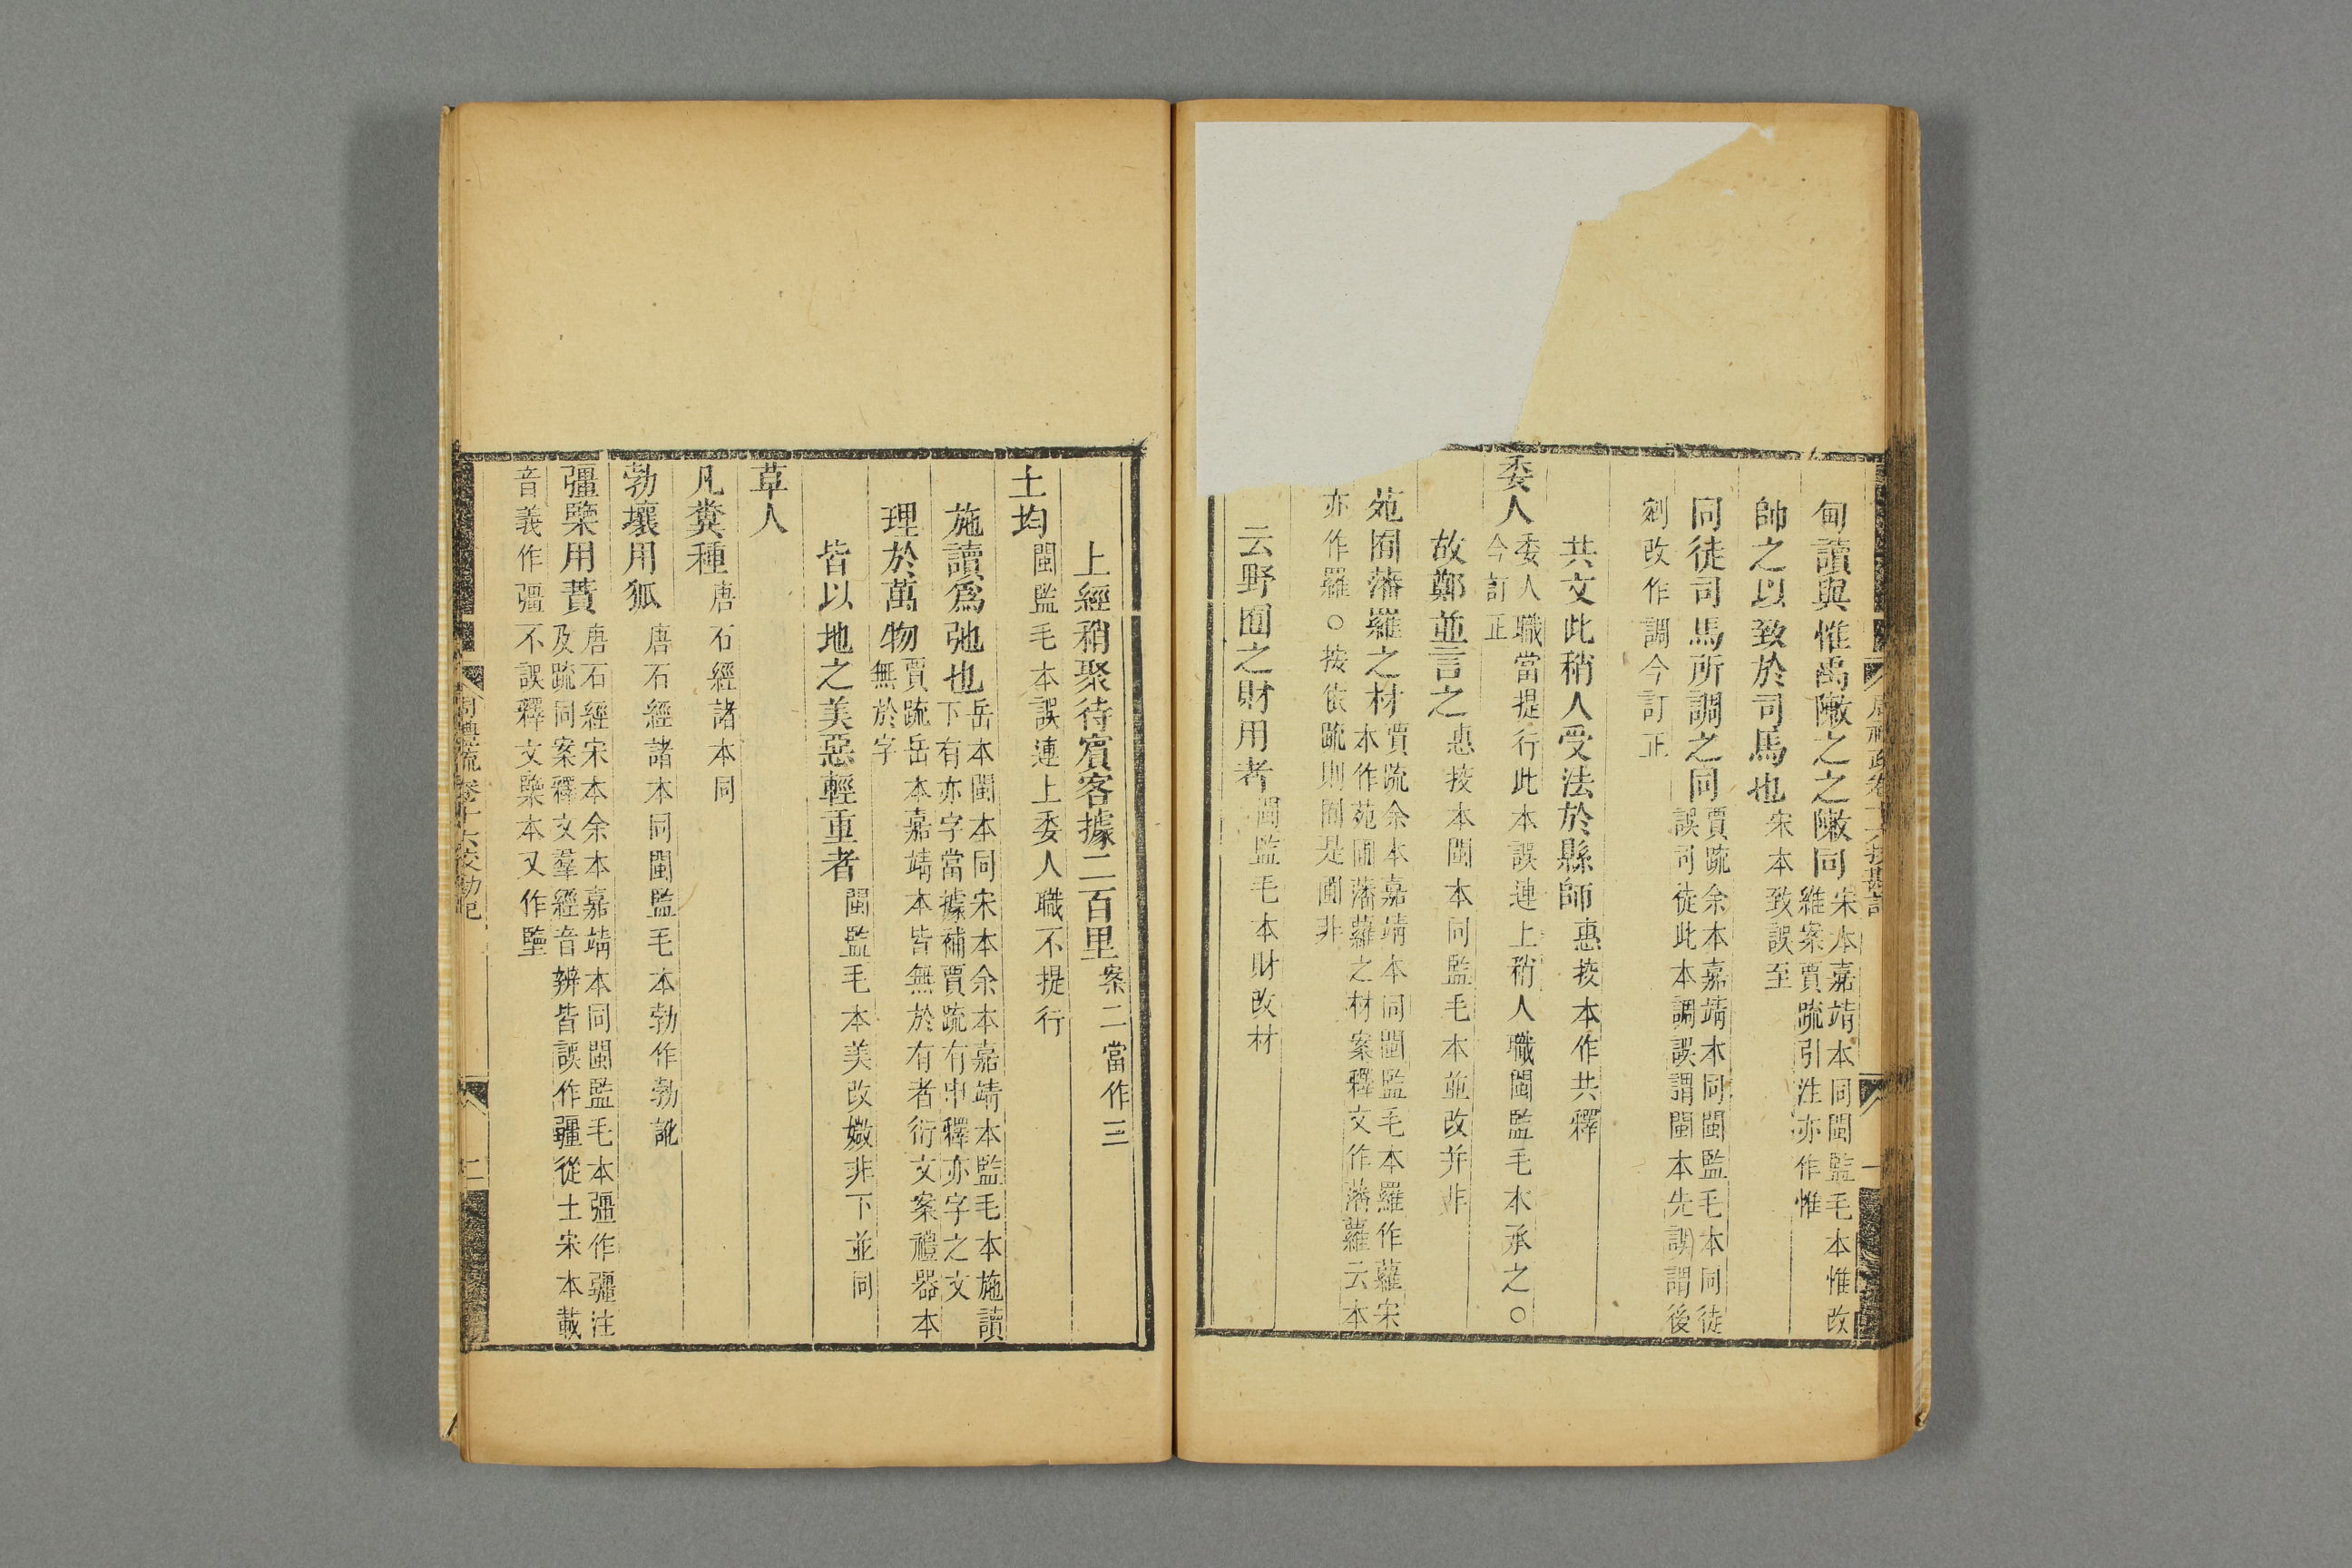 甸讀與惟禹敶之之敶同宋本嘉靖本同閩監毛本惟改
維案賈疏引注亦作惟
帥之以致於司馬也宋本致誤至
同徒司馬所調之同賈疏余本嘉靖本同閩監毛本同徒
誤司徒此本調誤謂閩本先誤謂後
剜改作調今訂正
共文此稍人受法於縣師惠挍本作共釋
委人委人職當提行此本誤連上稍人職閩監毛本承之○
今訂正
故鄭並言之惠挍本閩本同監毛本並改并非
苑囿藩羅之材賈疏余本嘉靖本同閩監毛本羅作蘿宋
本作苑囿藩蘿之材案釋文作藩蘿云本
亦作羅○按依疏則囿是圃非
云野囿之財用者閩監毛本財改材
上經稍聚待賓客據二百里案二當作三
土均閩監毛本誤連上委人職不提行
施讀爲弛也岳本閩本同宋本余本嘉靖本監毛本施讀
下有亦字當據補賈疏有申釋亦字之文
理於萬物賈疏岳本嘉靖本皆無於有者衍文案禮器本
無於字
皆以地之美惡輕重者閩監毛本美改媺非下並同
草人
凡糞種唐石經諸本同
勃壤用狐唐石經諸本同閩監毛本勃作勃訛
彊㯺用蕡唐石經宋本余本嘉靖本同閩監毛本彊作疆注
及疏同案釋文羣經音辨皆誤作疆從土宋本載
音義作彊不誤釋文㯺本又作壏
周禮疏卷十六挍勘記
二